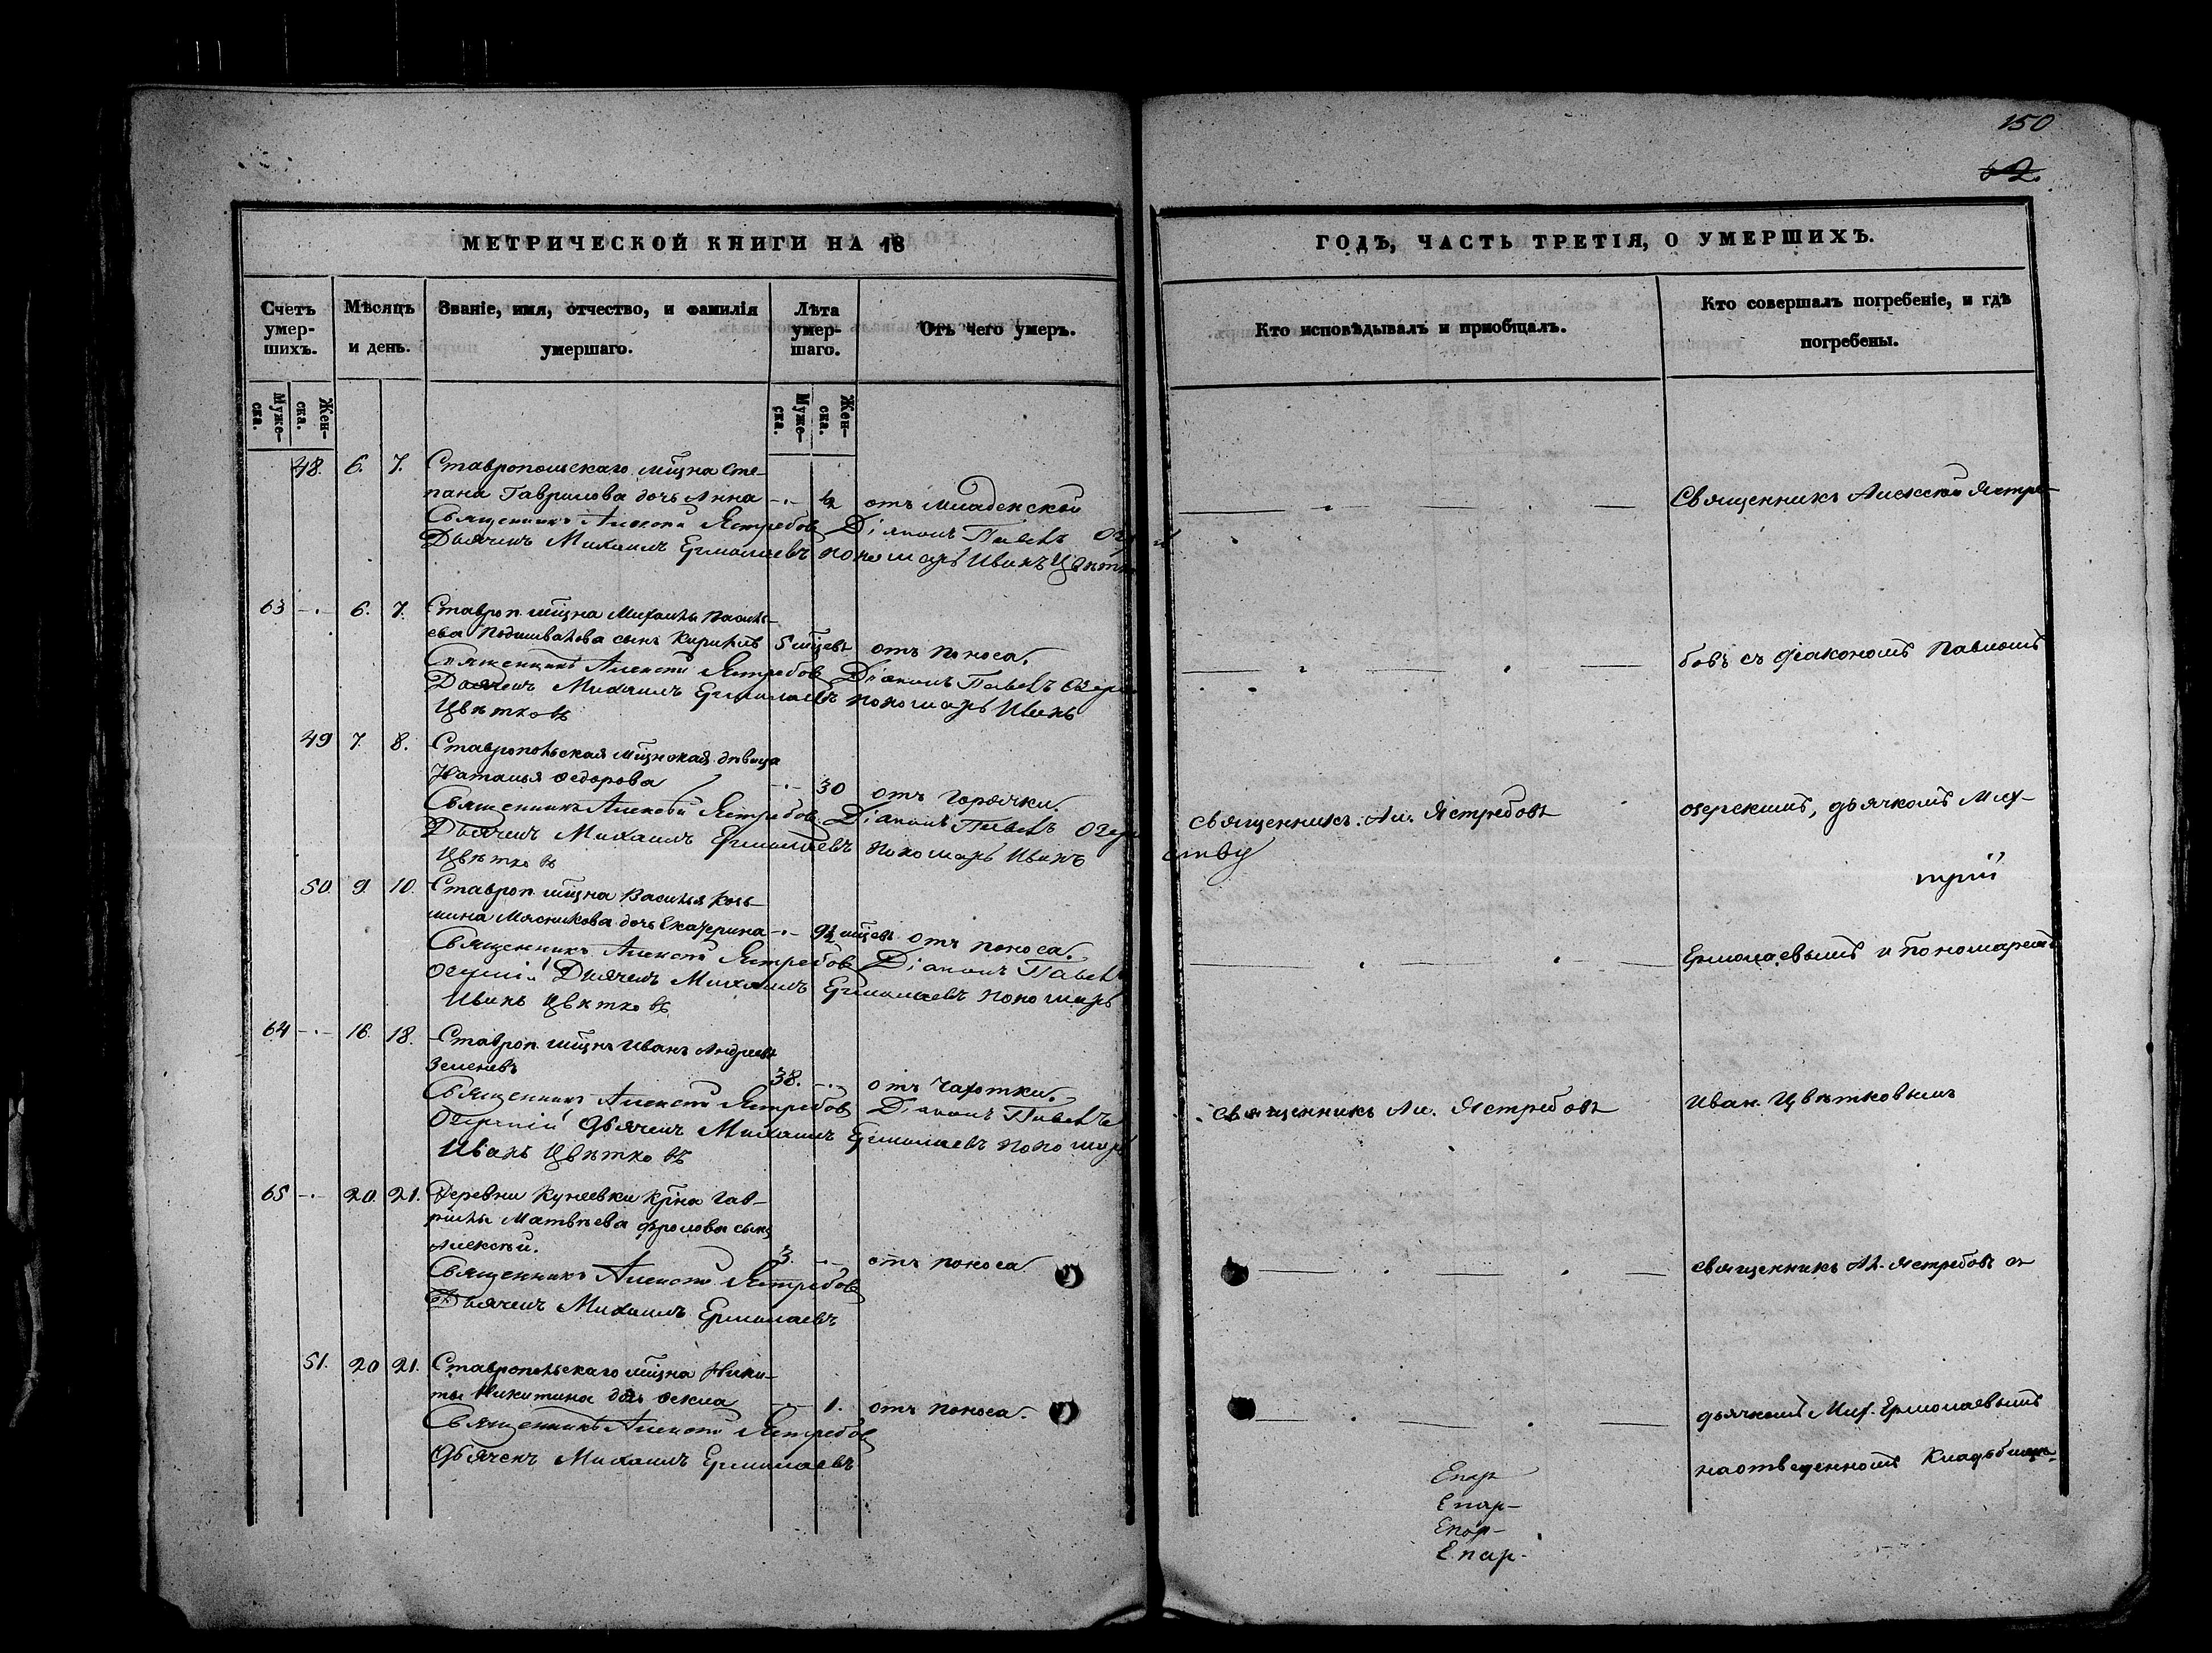 150
62.
МЕТРИЧЕСКОЙ КНИГИ НА 18
Счетъ умер-шихъ. Мѣсяцъ и день. Званіе, имя, отчество, и фамилія умершаго. Лѣта умер-шаго. Отъ чего умеръ.
Муже-ска. Жен-ска. Муже-ска. Жен-ска.
48. 6. 7. Ставропольскаго мщна Сте-
пана Гаврилова дочь Анна -.- ½ отъ младенской
Священникъ Алексѣй Ястребовъ Діаконъ Павелъ
Дьячекъ Михаилъ Ермолаевъ пономарь Иванъ Цвѣтк
63 -.- 6. 7. Ставроп. мщна Михаила Василь-
ева Подшивалова сынъ Кирилъ 5 мцевъ отъ поноса.
Священникъ Алексѣй Ястребовъ Діаконъ Павелъ Озер
Дьячекъ Михаилъ Ермолаевъ пономарь Иванъ
Цвѣтковъ
49 7. 8. Ставропольская мщнская дѣвица
Наталья Федорова -.- 30 отъ горячки.
Священникъ Алексѣй Ястребовъ Діаконъ Павелъ Озер
Дьячекъ Михаилъ Ермолаевъ пономарь Иванъ
Цвѣтковъ
50. 9. 10. Ставроп. мщна Василья Козь-
мина Мясникова дочь Екатерина -.- 9½ мцевъ отъ поноса.
Священникъ Алексѣй Ястребовъ Діаконъ Павелъ
Дьячекъ Михаилъ Ермолаевъ пономарь
Иванъ Цвѣтковъ
64 -.- 16. 18. Ставроп. мщнъ Иванъ Андреевъ
Зеленевъ 38. -.- отъ чахотки.
Священникъ Алексѣй Ястребовъ Діаконъ Павелъ
Дьячекъ Михаилъ Ермолаевъ пономарь
Иванъ Цвѣтковъ
65 -.- 20. 21. Деревни Кунеевки крна Гав-
рилы Матвѣева Фролова сынъ
Алексѣй. 3. -.- отъ поноса
Священникъ Алексѣй Ястребовъ
Дьячекъ Михаилъ Ермолаевъ
51. 20 21. Ставропольскаго мщна Ники-
ты Никитина дочь Фекла -.- 1. отъ поноса.
Священникъ Алексѣй Ястребовъ
Дьячекъ Михаилъ Ермолаевъ
ГОДЪ, ЧАСТЬ ТРЕТІЯ, О УМЕРШИХЪ.
Кто исповѣдывалъ и пріобщалъ. Кто совершалъ погребеніе, и гдѣ погребены.
Священникъ Алексѣй Ястре-
бовъ съ діакономъ Павломъ
священникъ Ал. Ястребовъ
озерскимъ, дьячкомъ Мих-
Ермолаевымъ и пономаремъ
священникъ Ал. Ястребовъ
Иван. Цвѣтковымъ
священникъ Ал. Ястребовъ съ
дьячкомъ Мих. Ермолаевымъ
на отведенномъ Кладбищѣ
Епар
Епар-
Епар-
Епар-